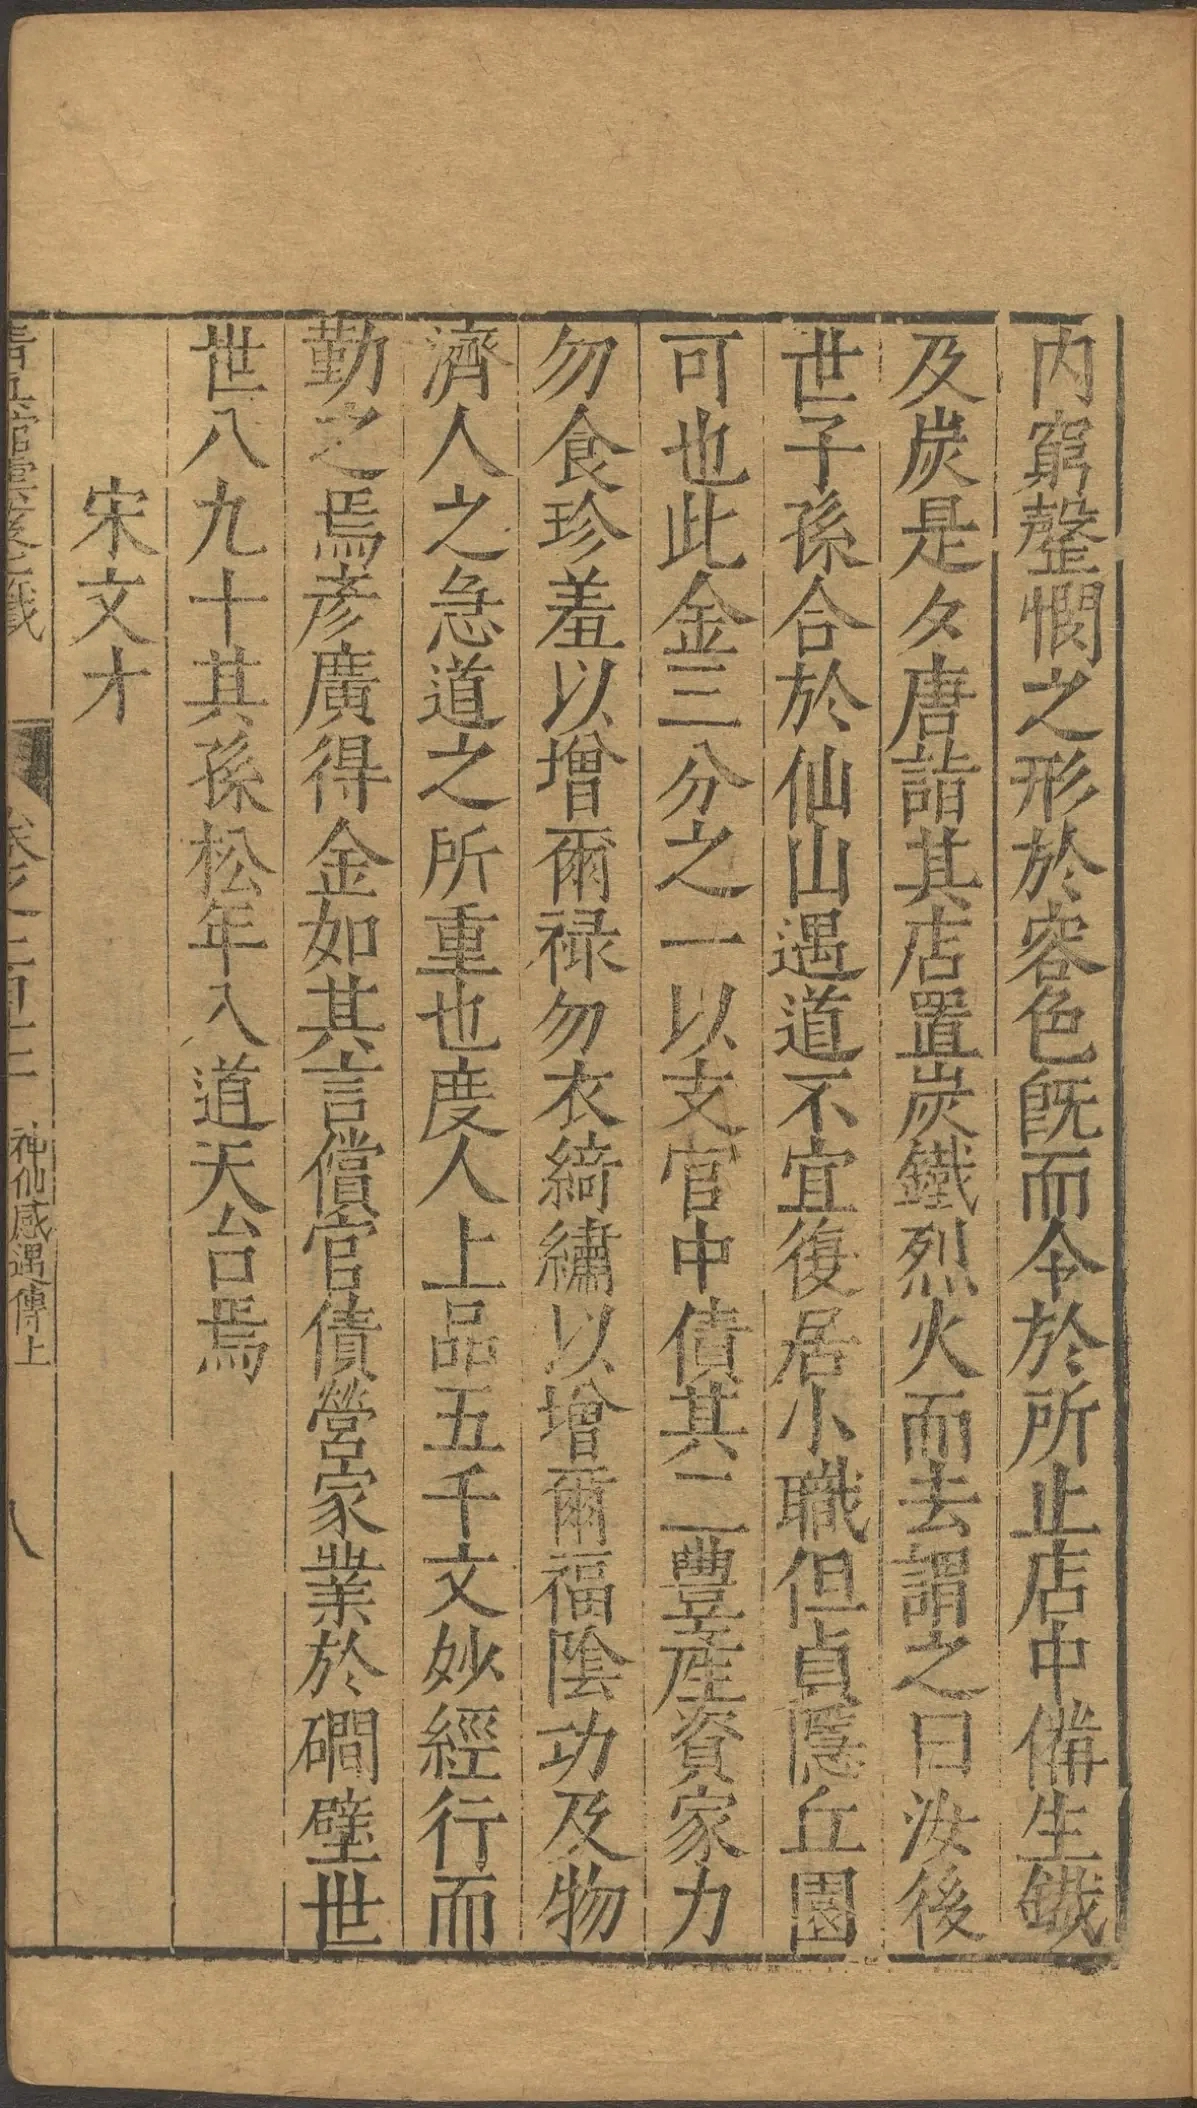 內窮罄憫之形於容色旣而令於所止店中備生鐵
及炭是夕唐詣其店置炭鐵烈火而去謂之曰汝後
世子孫合於仙山遇道不宜復居小職但貞隱丘園
可也此金三分之一以支官中債其二豐產資家力
勿食珍羞以增爾祿勿衣綺繡以增爾福陰功及物
濟人之急道之所重也度人上品五千文妙經行而
勤之焉彥廣得金如其言償官債營家業於磵壁世
世八九十其孫松年入道天台焉
宋文才
卷之一百十二 神仙感遇傳上 八